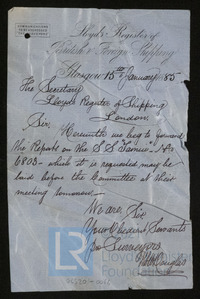 Lloyd's Register of
British & Foreign Shipping
Glasgow 15th January 1885
The Secretary
Lloyds Register of Shipping
London.
Sir,
Herewith we beg to forward
the Reports on the S.S. No
6803 - which it is requested, may be
laid before the Committee at their
meeting tomorrow.
We are Sir
Your Obedient Servants
Surveyors
LR Lloyd's Register
Foundation